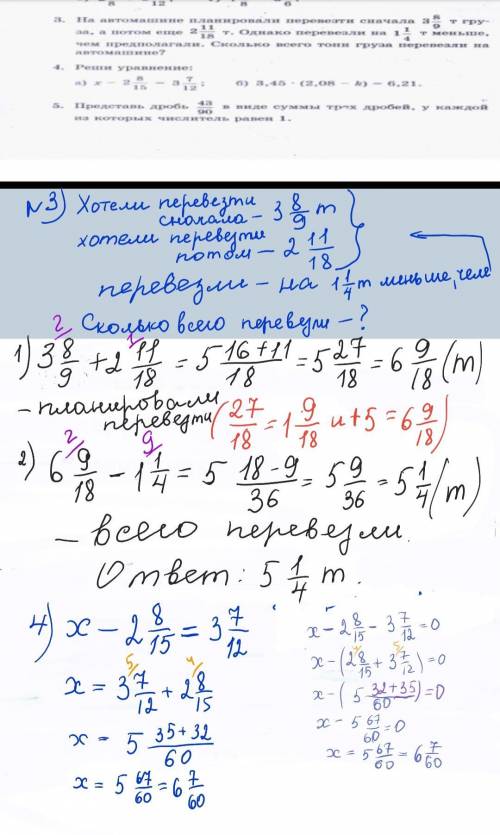 3. На автомашине планировали перевезти сначала 3 8/9 т гру-
за, а потом еще 2 11/18 т. Однако перевезли на 1 1/4 т меньше,
чем предполагали. Сколько всего тонн груза перевезли на
автомашине?
4. Реши уравнение:
а) x − 2 8/15 = 3 7/12; б) 3,45 · (2,08 − k) = 6,21.
5. Представь дробь 43/90 в виде суммы трех дробей, у каждой
из которых числитель равен 1.
№3) Хотели перевезти
сначала – 3 8/9 т
хотели перевезти
потом – 2 11/18
перевезли – на 1 1/4 т меньше, чем
Сколько всего перевезли – ?
1) 3 8/9 + 2 11/18 = 5 (16+11)/18 = 5 27/18 = 6 9/18 (т)
– планировали
перевезти (27/18 = 1 9/18 и + 5 = 6 9/18)
2) 6 9/18 − 1 1/4 = 5 (18-9)/36 = 5 9/36 = 5 1/4 (т)
– всего перевезли.
Ответ: 5 1/4 т.
4) x − 2 8/15 = 3 7/12
x = 3 7/12 + 2 8/15
x = 5 (35+32)/60
x = 5 67/60 = 6 7/60
x − 2 8/15 − 3 7/12 = 0
x − (2 8/15 + 3 7/12) = 0
x − (5 (32+35)/60) = 0
x − 5 67/60 = 0
x = 5 67/60 = 6 7/60